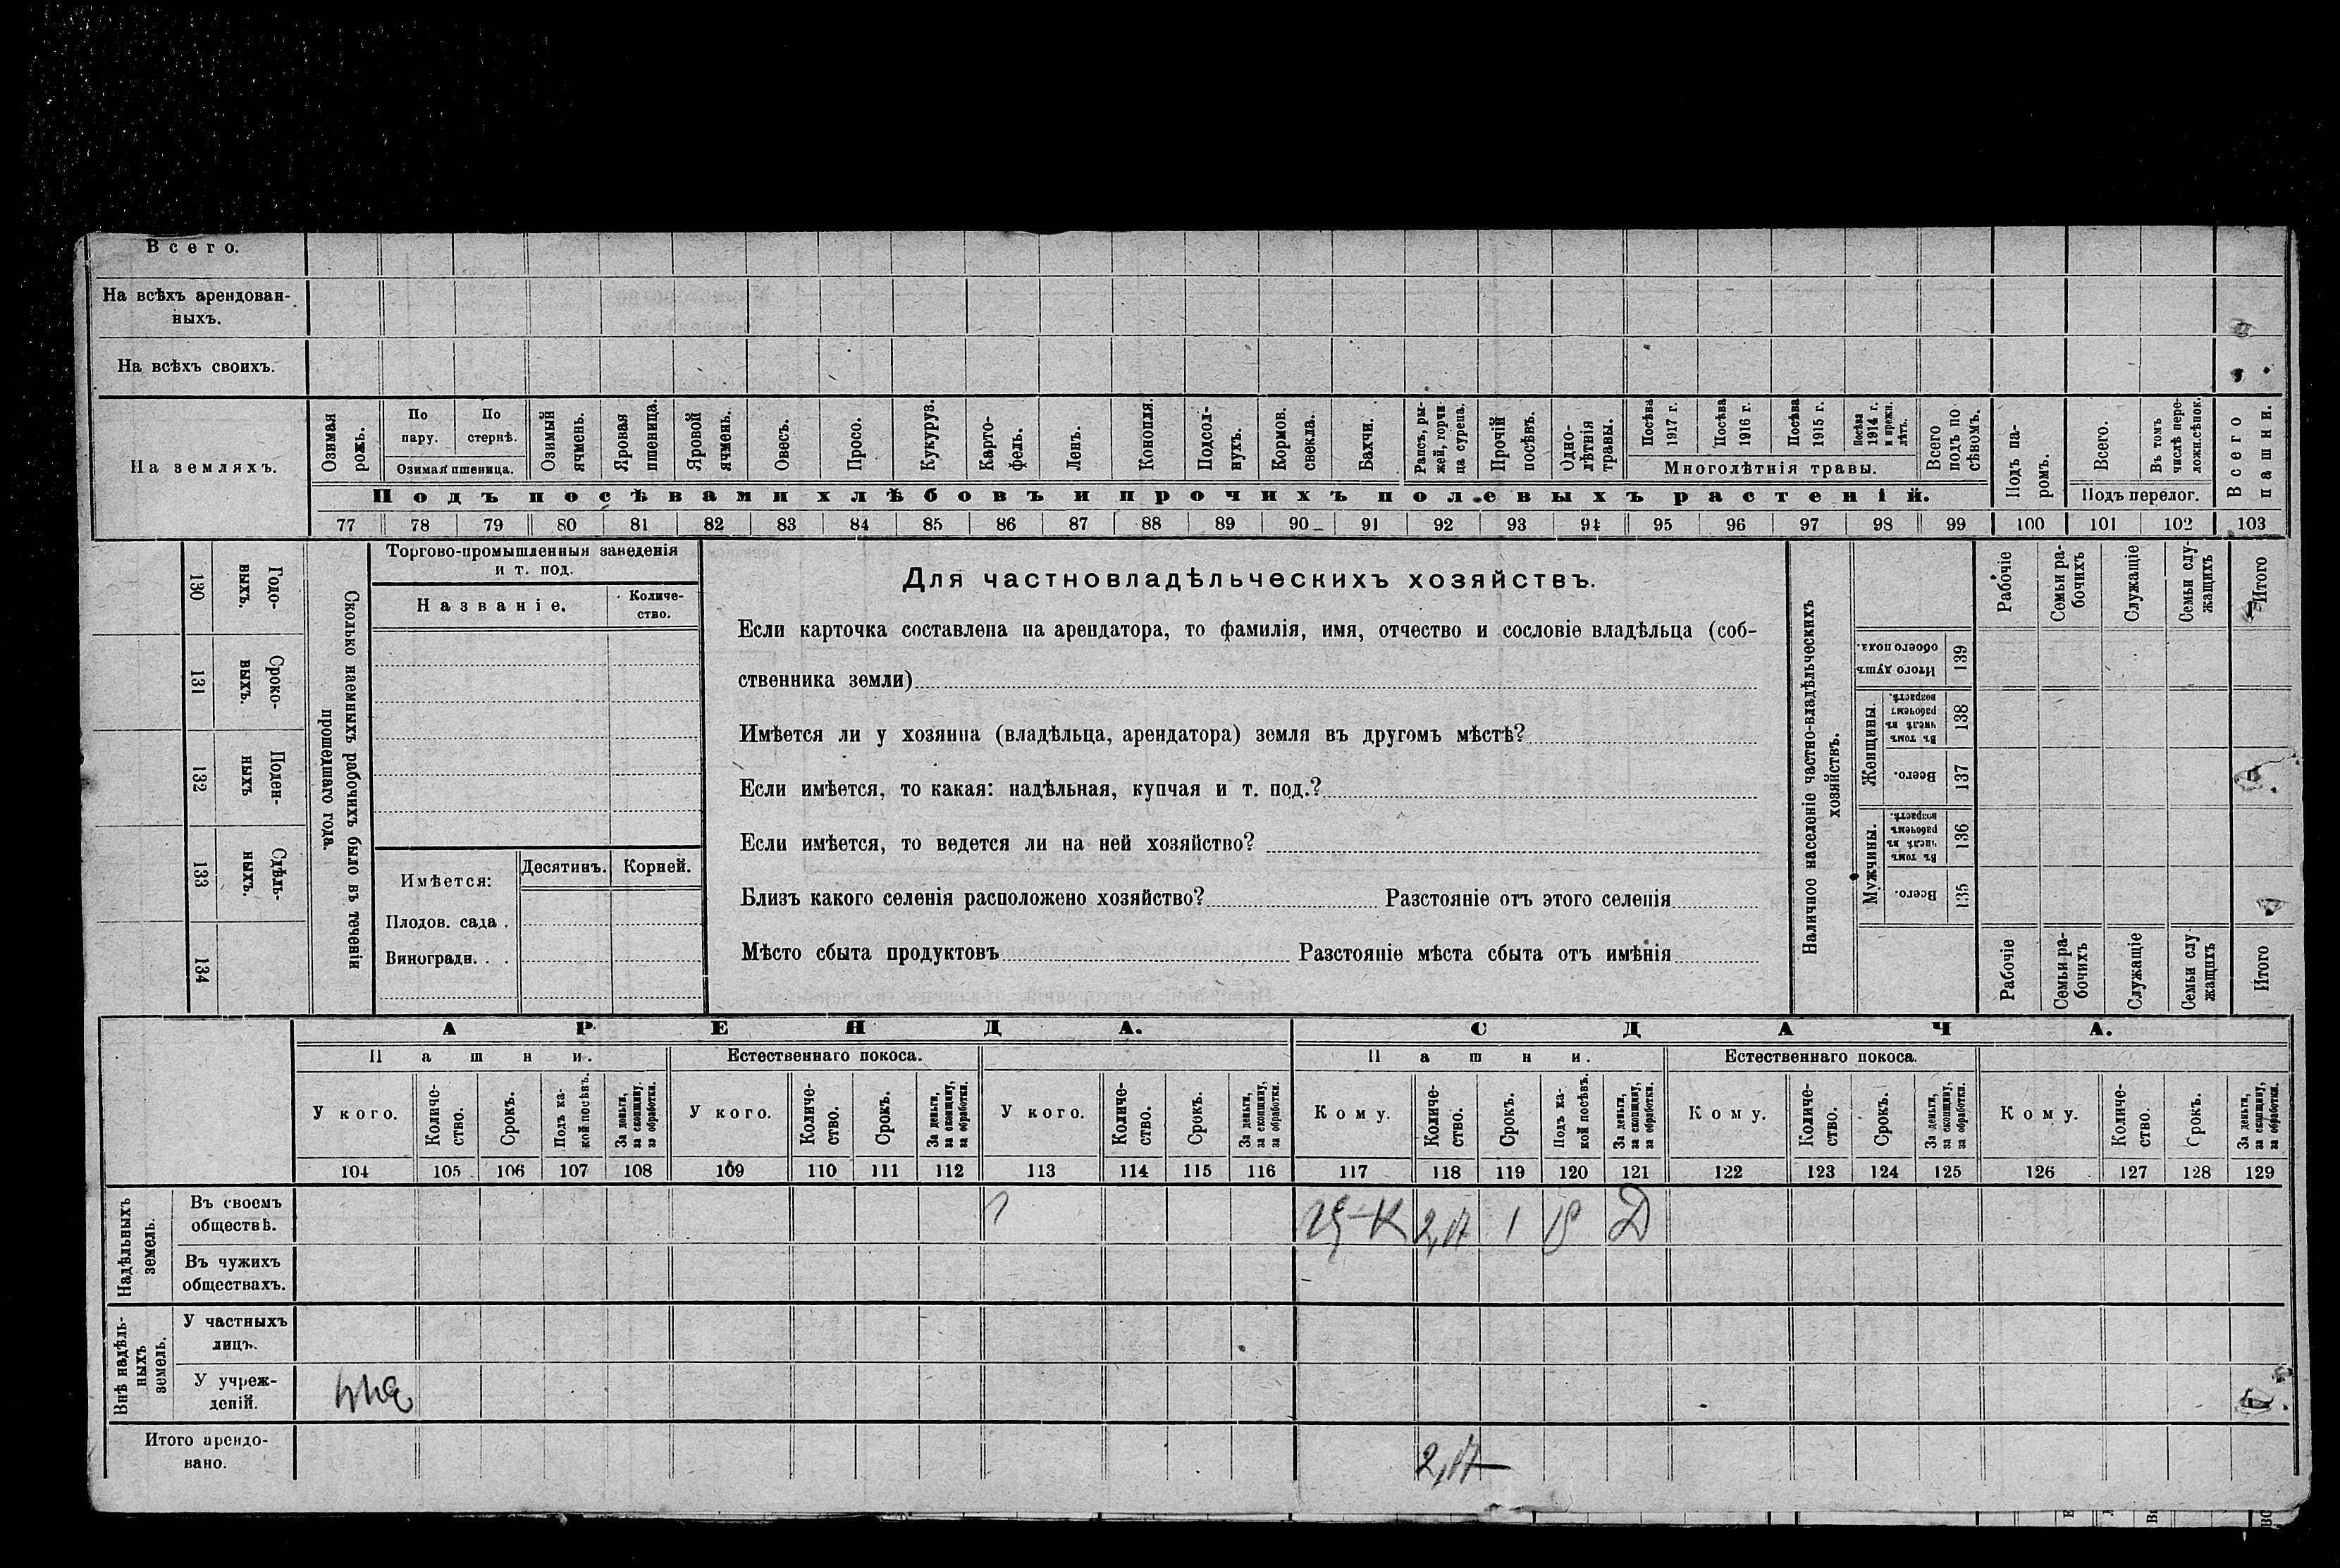 Всего.
На всѣхъ арендован-
ныхъ.
На всѣхъ своихъ.
На земляхъ.
Озимая рожь.
По пару.
По стернѣ.
Озимая пшеница.
Озимый ячмень.
Яровая пшеница.
Яровой ячмень.
Овесъ.
Просо.
Кукуруз.
Карто-
фель.
Ленъ.
Конопля.
Подсол-
нухъ.
Кормов. свекла.
Бахчи.
Рапсъ, ры-
жей, горчи
ца сурепа.
Прочій посѣвъ.
Одно-
лѣтнія травы.
Посѣва 1917 г.
Посѣва 1916 г.
Посѣва 1915 г.
Посѣва 1914 г. и прежн. лѣтъ.
Многолѣтнія травы.
Всего подъ по
сѣвомъ.
Подъ па-
ромъ.
Всего.
Въ томъ числѣ пере-
ложн.сѣнок.
Подъ перелог.
Всего пашни.
Подъ посѣвами хлѣбовъ и прочихъ полевыхъ растеній.
77 78 79 80 81 82 83 84 85 86 87 88 89 90 91 92 93 94 95 96 97 98 99 100 101 102 103
130 Годо-
выхъ.
131 Сроко-
выхъ.
132 Поден-
ныхъ
133 Сдѣль-
ныхъ.
134
Сколько наемныхъ рабочихъ было въ теченіи
прошедшаго года.
Торгово-промышленныя заведенія
и т. под.
Названіе.
Количе-
ство.
Имѣется:
Десятинъ.
Корней.
Плодов. сада .
Виноградн. . .
Для частновладѣльческихъ хозяйствъ.
Если карточка составлена на арендатора, то фамилія, имя, отчество и сословіе владѣльца (соб-
ственника земли)
Имѣется ли у хозяина (владѣльца, арендатора) земля въ другомъ мѣстѣ?
Если имѣется, то какая: надѣльная, купчая и т. под.?
Если имѣется, то ведется ли на ней хозяйство?
Близъ какого селенія расположено хозяйство? Разстояніе отъ этого селенія
Мѣсто сбыта продуктовъ Разстояніе мѣста сбыта отъ имѣнія
Наличное населеніе частно-владѣльческихъ
хозяйствъ.
Рабочіе
Семьи ра-
бочихъ
Служащіе
Семьи слу-
жащихъ
Итого
Итого душъ обоего пола.
139
Женщины.
Въ томъ числѣ въ рабочемъ возрастѣ.
138
Всего.
137
Мужчины.
Въ томъ числѣ въ рабочемъ возрастѣ.
136
Всего.
135
Рабочіе
Семьи ра-
бочихъ
Служащіе
Семьи слу
жащихъ
Итого
АРЕНДА.
СДАЧА.
Пашни.
Естественнаго покоса.
Пашни.
Естественнаго покоса.
У кого.
Количе-
ство.
Срокъ.
Подъ ка-
кой посѣвъ.
За деньги, за скопщину, за обработки.
У кого.
Количе-
ство.
Срокъ.
За деньги, за скопщину, за обработки.
У кого.
Количе-
ство.
Срокъ.
За деньги, за скопщину, за обработки.
Кому.
Количе-
ство.
Срокъ.
Подъ ка-
кой посѣвъ.
За деньги, за скопщину, за обработки.
Кому.
Количе-
ство.
Срокъ.
За деньги, за скопщину, за обработки.
Кому.
Количе-
ство.
Срокъ.
За деньги, за скопщину, за обработки.
104 105 106 107 108 109 110 111 112 113 114 115 116 117 118 119 120 121 122 123 124 125 126 127 128 129
Надѣльныхъ земель.
Въ своемъ
обществѣ.
1 Д
Въ чужихъ
обществахъ.
Внѣ надѣль-
ныхъ земель.
У частныхъ
лицъ.
У учреж-
деній.
Итого арендо-
вано.